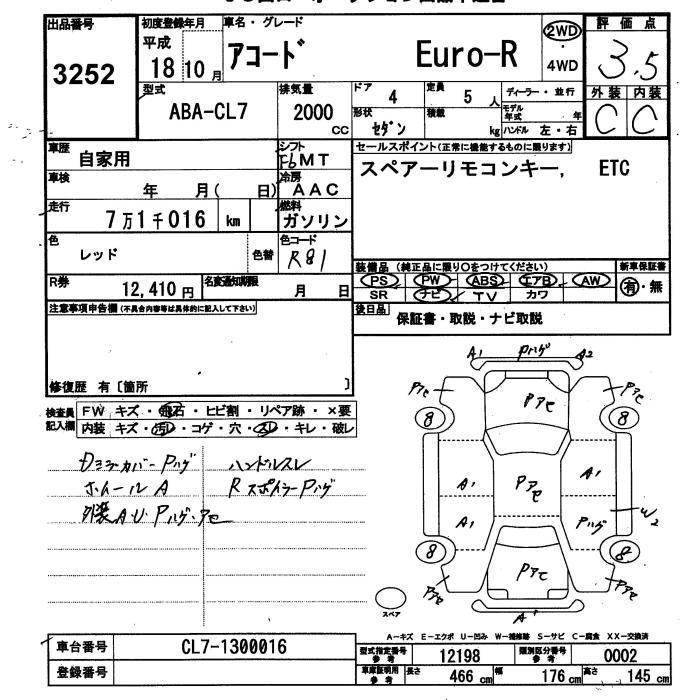 出品番号
3252
初度登録年月
平成
18 10 月
車名・グレード
アコード Euro-R
2WD
・
4WD
評価点
3.5
外装 内装
C C
型式
ABA-CL7
排気量
2000
CC
ドア 4
定員 5 人
ディーラー・並行
形状 セダン
積載 kg
モデル年式 年
ハンドル 左・右
車歴 自家用
シフト F6MT
車検 年 月( 日)
冷房 AAC
走行 7万1千016 km
燃料 ガソリン
色 レッド
色替
色コード R81
R券 12,410 円
名変通知期限 月 日
セールスポイント(正常に機能するものに限ります)
スペアーリモコンキー, ETC
装備品 (純正品に限り○をつけてください)
新車保証書
PS PW ABS エアB AW
SR ナビ TV カワ
有・無
後日品 保証書・取説・ナビ取説
注意事項申告欄(不具合内容等は具体的に記入して下さい)
修復歴 有〔箇所 〕
検査員
記入欄
FW キズ・飛石・ヒビ割・リペア跡・×要
内装 キズ・汚レ・コゲ・穴・スレ・キレ・破レ
ハンドルスレ
ホイールA Rスポイラー Pハゲ
外装A.U Pハゲ・アセ
A1 Pハゲ A2
Pアセ Pアセ
8 Pアセ 8
A1 A1
Pアセ
A1 Pハゲ W2
8 8
Pアセ Pアセ Pアセ
A1
スペア
A-キズ E-エクボ U-凹み W-補修跡 S-サビ C-腐食 XX-交換済
車台番号 CL7-1300016
登録番号
型式指定番号
参考
12198
類別区分番号
参考
0002
車庫証明用
参考
長さ 466 cm 幅 176 cm 高さ 145 cm